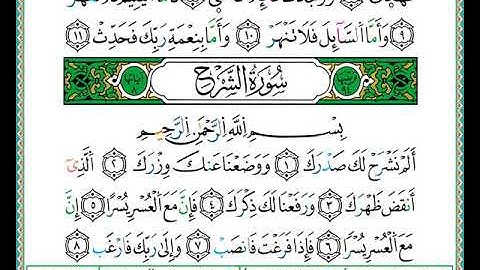 ٩ وَأَمَّا السَّآئِلَ فَلَا تَنْهَرْ ١٠ وَأَمَّا بِنِعْمَةِ رَبِّكَ فَحَدِّثْ ١١
سُورَةُ الشَّرْحِ
بِسْمِ اللَّهِ الرَّحْمَٰنِ الرَّحِيمِ
أَلَمْ نَشْرَحْ لَكَ صَدْرَكَ ١ وَوَضَعْنَا عَنكَ وِزْرَكَ ٢ الَّذِىٓ
أَنقَضَ ظَهْرَكَ ٣ وَرَفَعْنَا لَكَ ذِكْرَكَ ٤ فَإِنَّ مَعَ الْعُسْرِ يُسْرًا ٥ إِنَّ
مَعَ الْعُسْرِ يُسْرًا ٦ فَإِذَا فَرَغْتَ فَانصَبْ ٧ وَإِلَىٰ رَبِّكَ فَارْغَب ٨